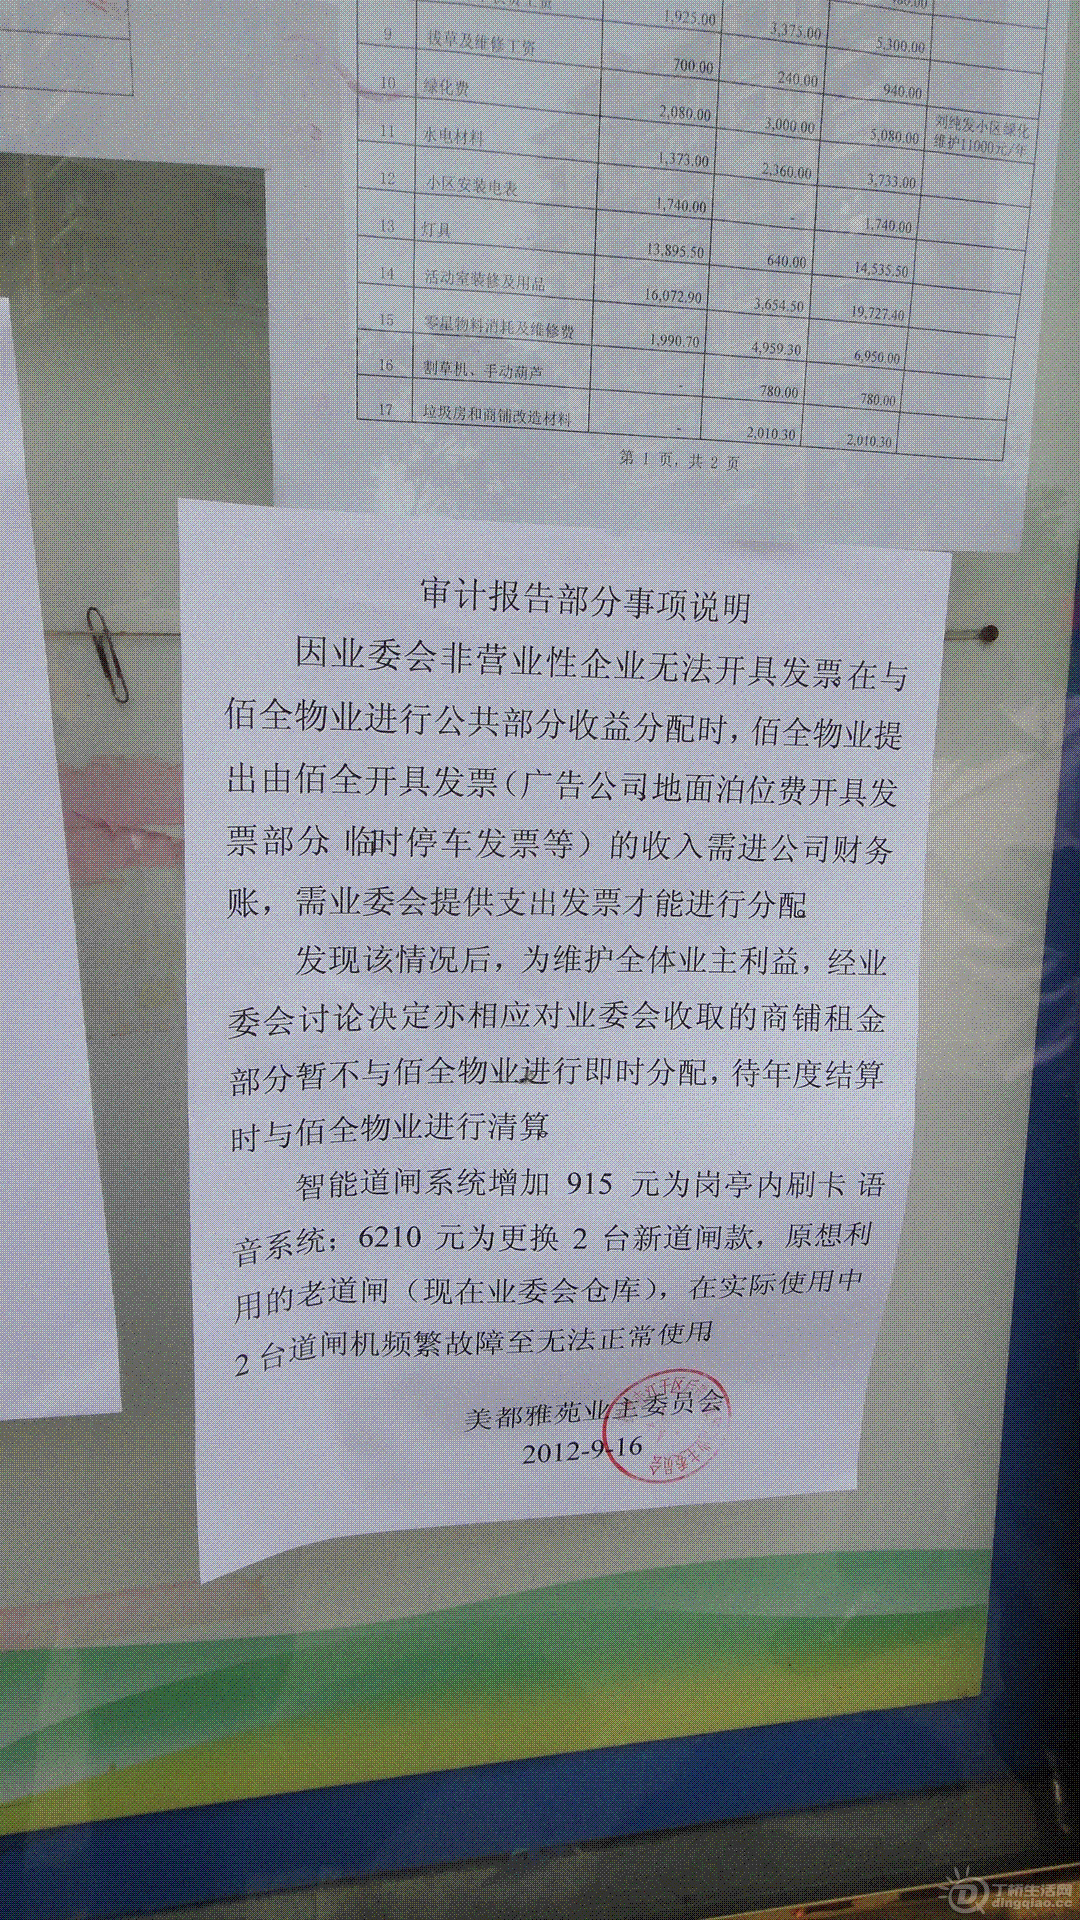 1,925.00 3,375.00
9 拔草及维修工资 700.00 240.00 5,300.00
10 绿化费 2,080.00 3,000.00 940.00
11 水电材料 1,373.00 2,360.00 5,080.00 刘纯发小区绿化维护11000元/年
12 小区安装电表 1,740.00 - 3,733.00
13 灯具 13,895.50 640.00 1,740.00
14 活动室装修及用品 16,072.90 3,654.50 14,535.50
15 零星物料消耗及维修费 1,990.70 4,959.30 19,727.40
16 割草机、手动葫芦 - 780.00 6,950.00
780.00
17 垃圾房和商铺改造材料 - 2,010.30 2,010.30
第 1 页，共 2 页
审计报告部分事项说明
因业委会非营业性企业无法开具发票在与
佰全物业进行公共部分收益分配时，佰全物业提
出由佰全开具发票（广告公司地面泊位费开具发
票部分、临时停车发票等）的收入需进公司财务
账，需业委会提供支出发票才能进行分配。
发现该情况后，为维护全体业主利益，经业
委会讨论决定亦相应对业委会收取的商铺租金
部分暂不与佰全物业进行即时分配，待年度结算
时与佰全物业进行清算。
智能道闸系统增加 915 元为岗亭内刷卡 语
音系统；6210 元为更换 2 台新道闸款，原想利
用的老道闸（现在业委会仓库），在实际使用中
2 台道闸机频繁故障至无法正常使用
美都雅苑业主委员会
2012-9-16
丁桥生活网
dingqiao.cc